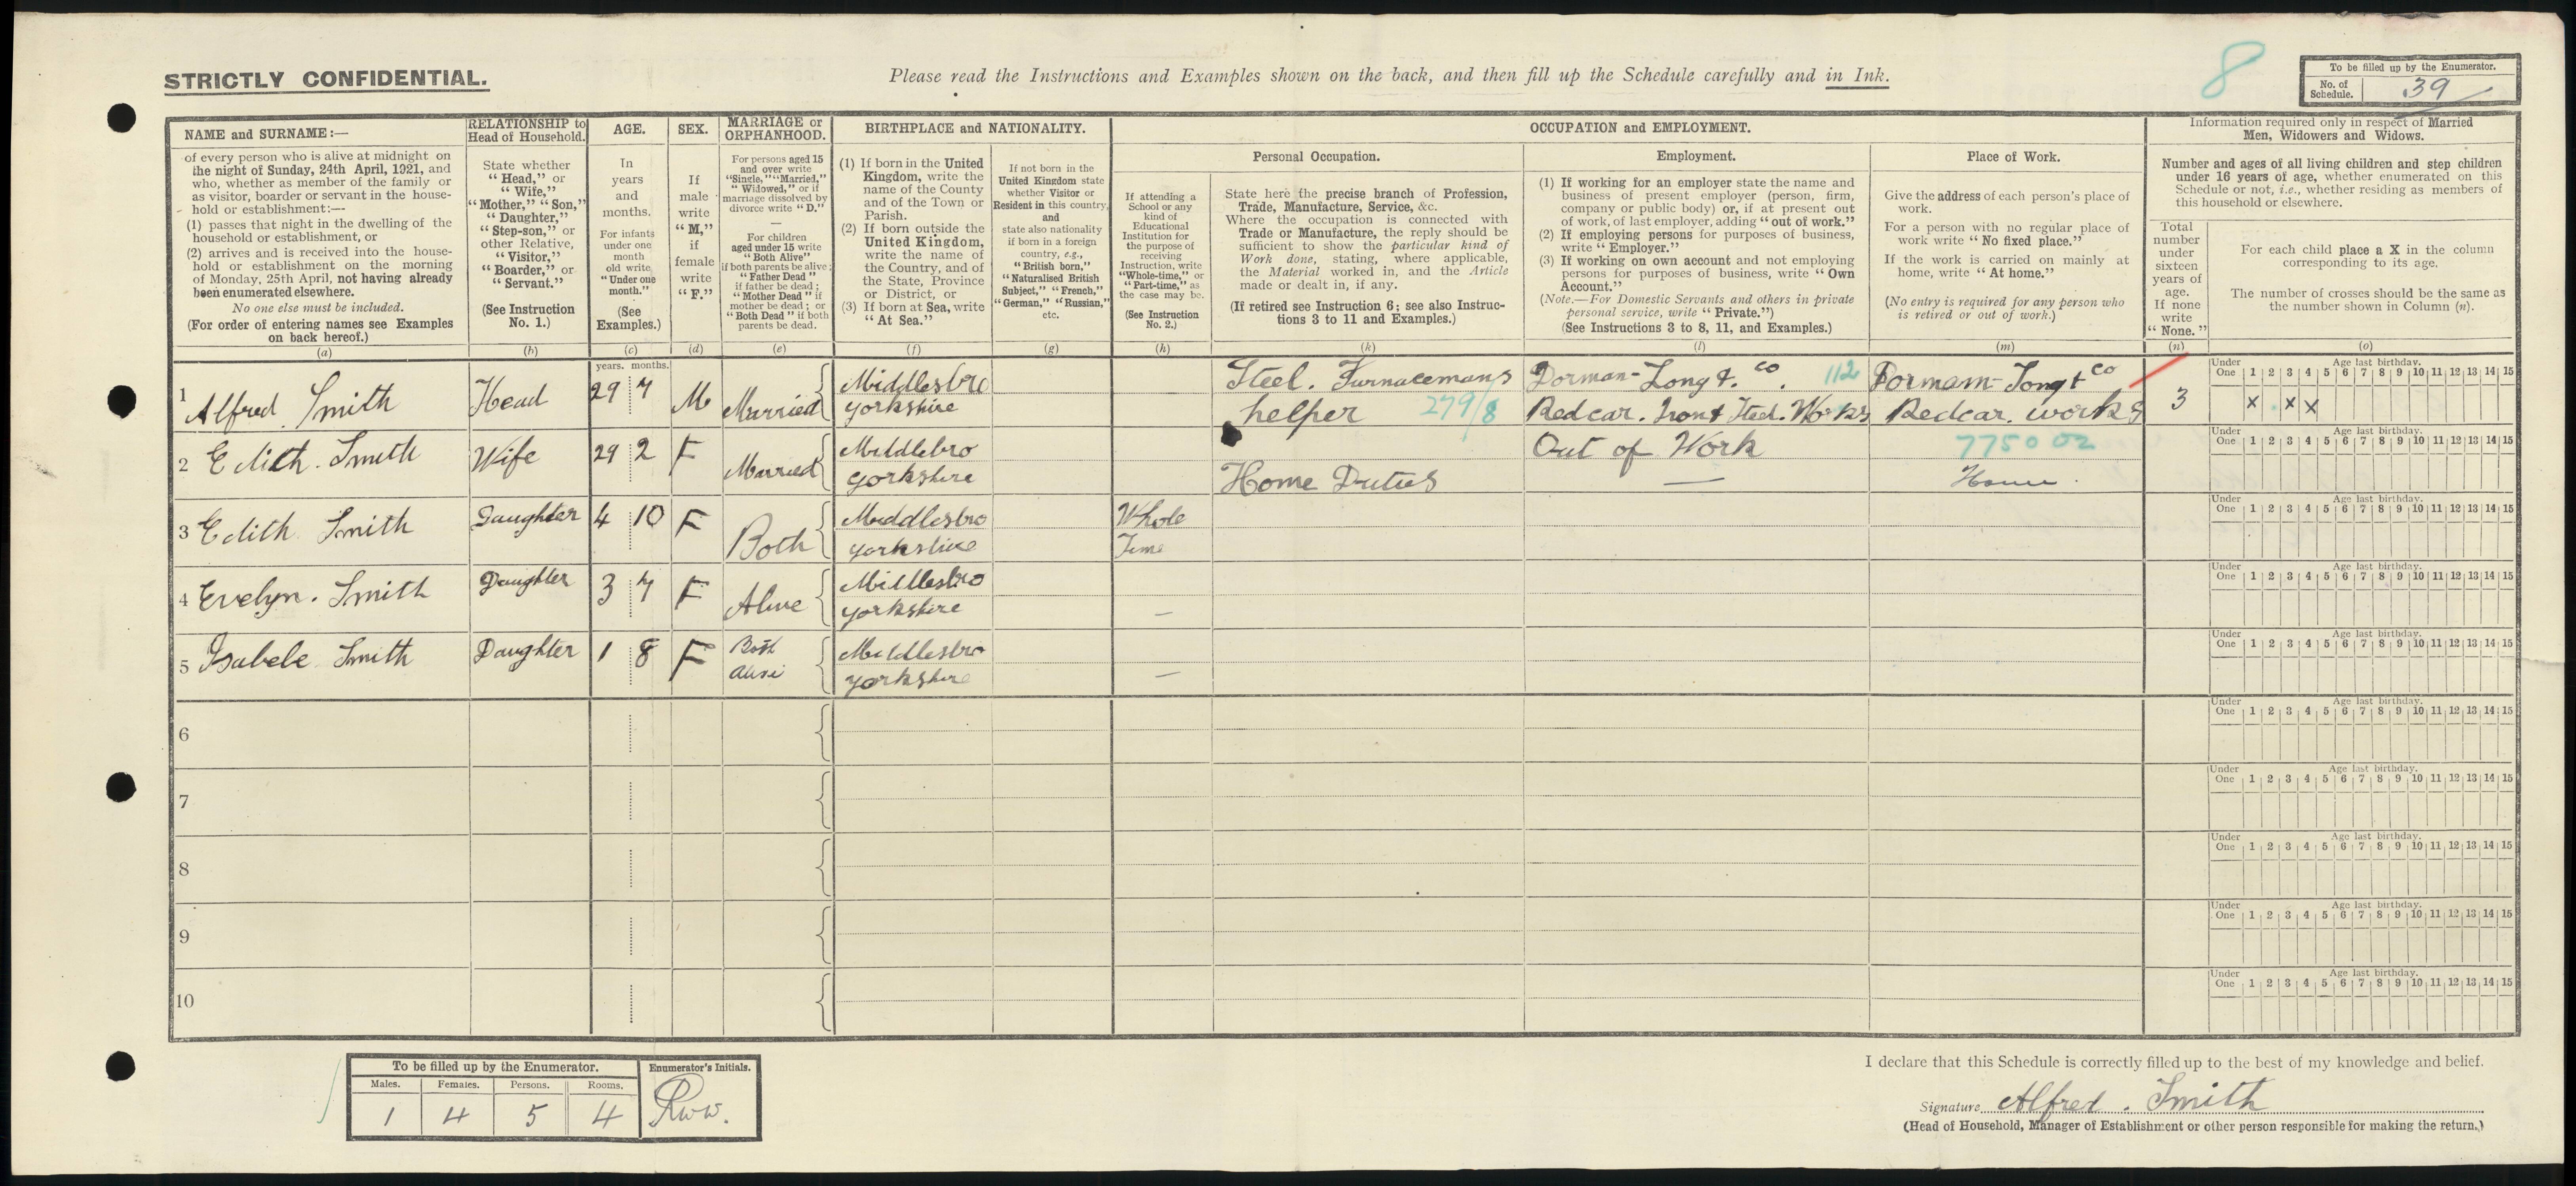 STRICTLY CONFIDENTIAL.
Please read the Instructions and Examples shown on the back, and then fill up the Schedule carefully and in Ink.
8
To be filled up by the Enumerator.
No. of Schedule. 39
NAME and SURNAME:—
of every person who is alive at midnight on
the night of Sunday, 24th April, 1921, and
who, whether as member of the family or
as visitor, boarder or servant in the house-
hold or establishment:—
(1) passes that night in the dwelling of the
household or establishment, or
(2) arrives and is received into the house-
hold or establishment on the morning
of Monday, 25th April, not having already
been enumerated elsewhere.
No one else must be included.
(For order of entering names see Examples
on back hereof.)
(a)
RELATIONSHIP to
Head of Household.
State whether
"Head," or
"Wife,"
"Mother," "Son,"
"Daughter,"
"Step-son," or
other Relative,
"Visitor,"
"Boarder," or
"Servant."
(See Instruction
No. 1.)
(b)
AGE.
In
years
and
months.
For infants
under one
month
old write
"Under one
month."
(See
Examples.)
(c)
SEX.
If
male
write
"M,"
if
female
write
"F."
(d)
MARRIAGE or
ORPHANHOOD.
For persons aged 15
and over write
"Single," "Married,"
"Widowed," or if
marriage dissolved by
divorce write "D."
—
For children
aged under 15 write
"Both Alive"
if both parents be alive;
"Father Dead"
if father be dead;
"Mother Dead" if
mother be dead; or
"Both Dead" if both
parents be dead.
(e)
BIRTHPLACE and NATIONALITY.
(1) If born in the United
Kingdom, write the
name of the County
and of the Town or
Parish.
(2) If born outside the
United Kingdom,
write the name of
the Country, and of
the State, Province
or District, or
(3) If born at Sea, write
"At Sea."
(f)
If not born in the
United Kingdom state
whether Visitor or
Resident in this country,
and
state also nationality
if born in a foreign
country, e.g.,
"British born,"
"Naturalised British
Subject," "French,"
"German," "Russian,"
etc.
(g)
OCCUPATION and EMPLOYMENT.
If attending a
School or any
kind of
Educational
Institution for
the purpose of
receiving
Instruction, write
"Whole-time," or
"Part-time," as
the case may be.
(See Instruction
No. 2.)
(h)
Personal Occupation.
State here the precise branch of Profession,
Trade, Manufacture, Service, &c.
Where the occupation is connected with
Trade or Manufacture, the reply should be
sufficient to show the particular kind of
Work done, stating, where applicable,
the Material worked in, and the Article
made or dealt in, if any.
(If retired see Instruction 6; see also Instruc-
tions 3 to 11 and Examples.)
(k)
Employment.
(1) If working for an employer state the name and
business of present employer (person, firm,
company or public body) or, if at present out
of work, of last employer, adding "out of work."
(2) If employing persons for purposes of business,
write "Employer."
(3) If working on own account and not employing
persons for purposes of business, write "Own
Account."
(Note.—For Domestic Servants and others in private
personal service, write "Private.")
(See Instructions 3 to 8, 11, and Examples.)
(l)
Place of Work.
Give the address of each person's place of
work.
For a person with no regular place of
work write "No fixed place."
If the work is carried on mainly at
home, write "At home."
(No entry is required for any person who
is retired or out of work.)
(m)
Information required only in respect of Married
Men, Widowers and Widows.
Number and ages of all living children and step children
under 16 years of age, whether enumerated on this
Schedule or not, i.e., whether residing as members of
this household or elsewhere.
Total
number
under
sixteen
years of
age.
If none
write
"None."
(n)
For each child place a X in the column
corresponding to its age.
The number of crosses should be the same as
the number shown in Column (n).
(o)
years. months.
Under One Age last birthday. 1 2 3 4 5 6 7 8 9 10 11 12 13 14 15
1 Alfred. Smith Head 29 7 M Married Middlesbro Yorkshire Steel. Furnacemans helper 279/8 Dorman-Long &. Co. 112 Redcar. Iron & Steel. Works Out of Work Dormam-Long & Co Redcar. works 775002 3 x x x
Under One Age last birthday. 1 2 3 4 5 6 7 8 9 10 11 12 13 14 15
2 Edith. Smith Wife 29 2 F Married Middlebro Yorkshire Home Duties — Home.
Under One Age last birthday. 1 2 3 4 5 6 7 8 9 10 11 12 13 14 15
3 Edith Smith Daughter 4 10 F Both Middlesbro Yorkshire Whole Time
Under One Age last birthday. 1 2 3 4 5 6 7 8 9 10 11 12 13 14 15
4 Evelyn. Smith Daughter 3 7 F Alive Middlesbro Yorkshire —
Under One Age last birthday. 1 2 3 4 5 6 7 8 9 10 11 12 13 14 15
5 Isabele Smith Daughter 1 8 F Both Alive Middlesbro Yorkshire —
Under One Age last birthday. 1 2 3 4 5 6 7 8 9 10 11 12 13 14 15
6
Under One Age last birthday. 1 2 3 4 5 6 7 8 9 10 11 12 13 14 15
7
Under One Age last birthday. 1 2 3 4 5 6 7 8 9 10 11 12 13 14 15
8
Under One Age last birthday. 1 2 3 4 5 6 7 8 9 10 11 12 13 14 15
9
Under One Age last birthday. 1 2 3 4 5 6 7 8 9 10 11 12 13 14 15
10
Under One Age last birthday. 1 2 3 4 5 6 7 8 9 10 11 12 13 14 15
To be filled up by the Enumerator.
Enumerator's Initials.
Males. Females. Persons. Rooms.
1 4 5 4 Rww.
I declare that this Schedule is correctly filled up to the best of my knowledge and belief.
Signature Alfred. Smith
(Head of Household, Manager of Establishment or other person responsible for making the return.)